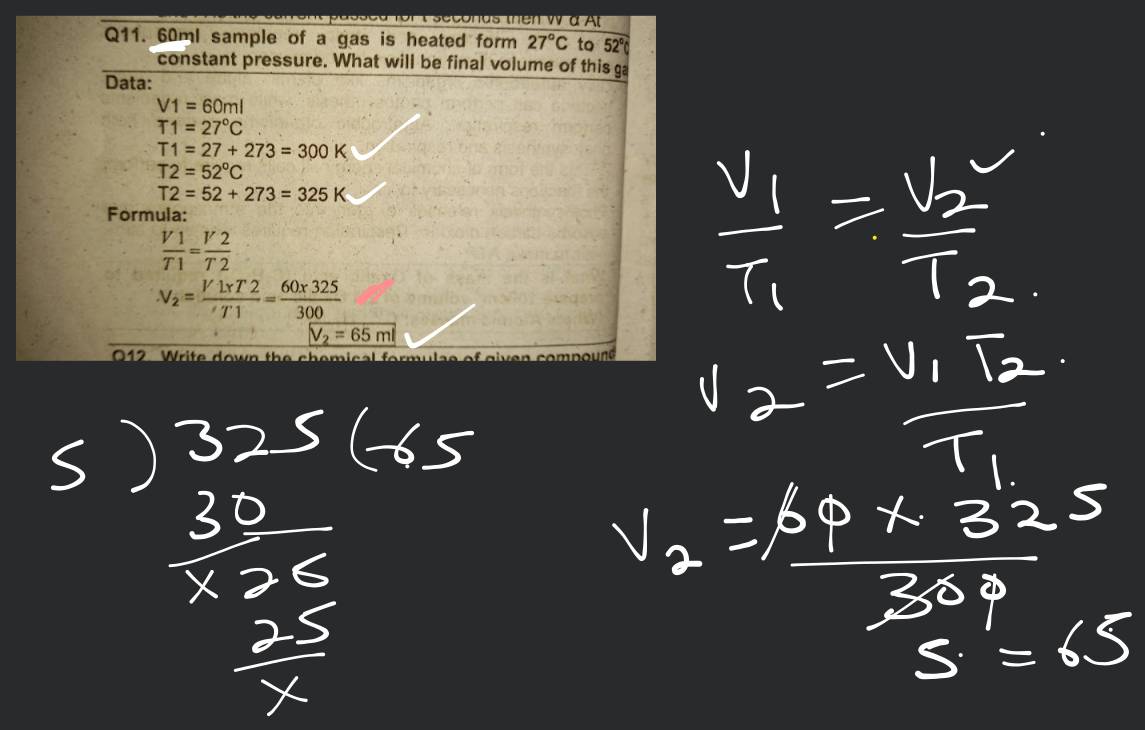 seconds then W α At
Q11. 60ml sample of a gas is heated form 27°C to 52°C
constant pressure. What will be final volume of this ga
Data:
V1 = 60ml
T1 = 27°C
T1 = 27 + 273 = 300 K
T2 = 52°C
T2 = 52 + 273 = 325 K
Formula:
V1/T1 = V2/T2
V₂ = V1xT2/T1 = 60x325/300
V₂ = 65 ml
Q12. Write down the chemical formulae of given compound
V₁/T₁ = V₂/T₂
V₂ = V₁ T₂/T₁
V₂ = 60 × 325/300
5 = 65
5 ) 325 ( 65
30
x 25
25
x